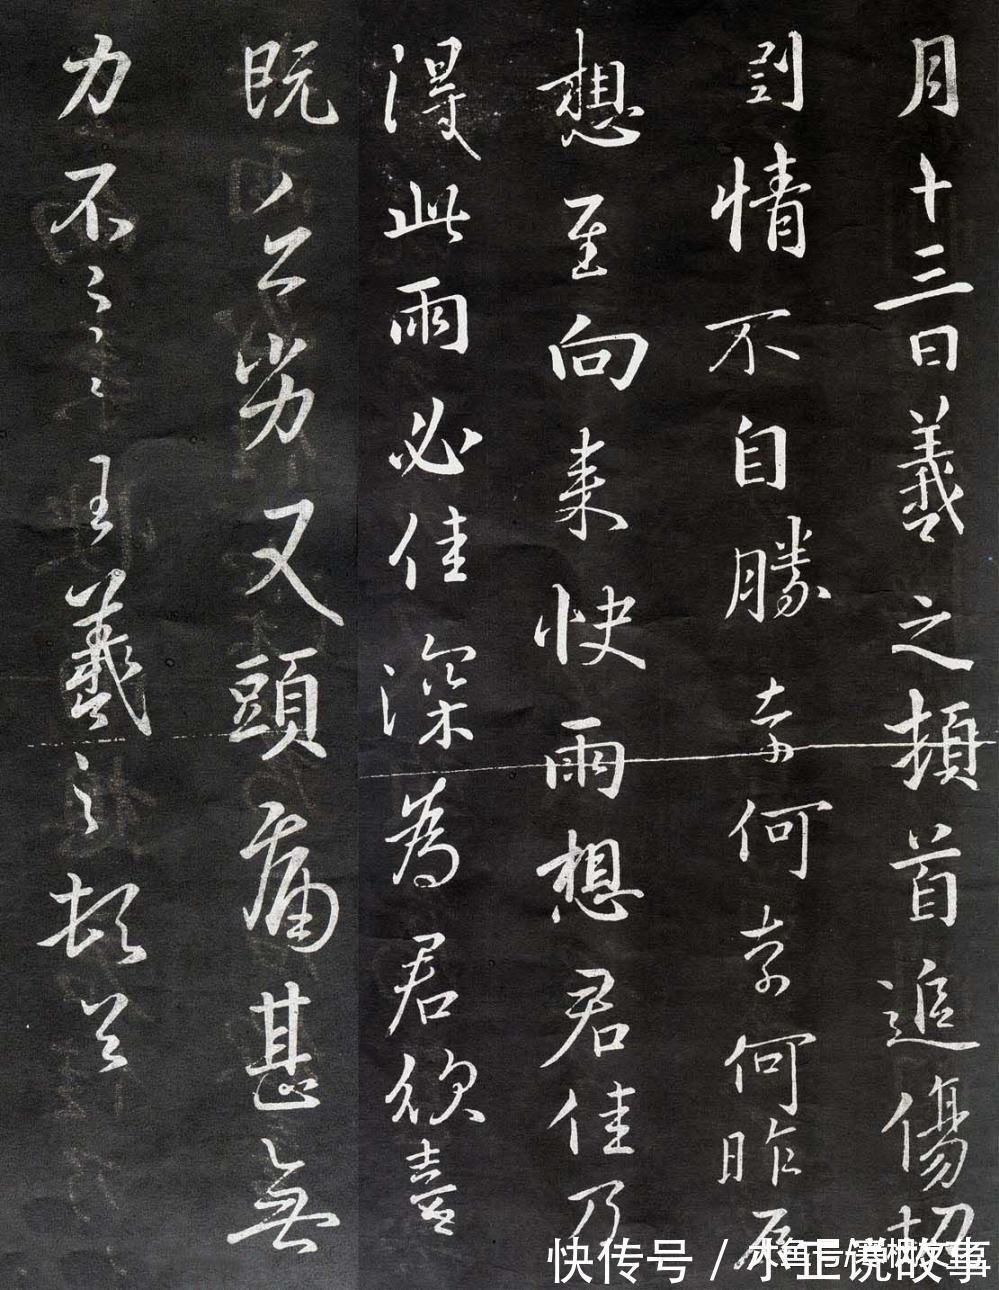 月十三日羲之頓首追傷切
情不自勝奈何奈何昨
想至向來快雨想君佳乃
得此雨必佳深為君欣喜
既劣又頭痛甚無
力不王羲之頓首
快传号/小正说故事